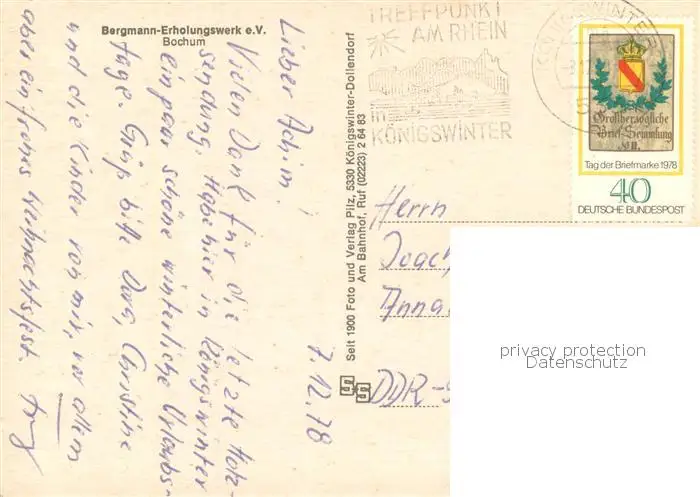 Bergmann-Erholungswerk e.V.
Bochum
Lieber Achim!
Vielen Dank für die letzte Holz-
sendung. Habe hier in Königswinter
ein paar schöne winterliche Urlaubs-
tage. Grüß bitte Dora, Christine
und die Kinder von mir, vor allem
aber ein frohes Weihnachtsfest.
7.12.78
Seit 1900 Foto und Verlag Pilz, 5330 Königswinter-Dollendorf
Am Bahnhof, Ruf (02223) 2 64 83
TREFFPUNKT
AM RHEIN
in
KÖNIGSWINTER
KÖNIGSWINTER
Großherzogliche
Brief-Sammlung
Tag der Briefmarke 1978
40
DEUTSCHE BUNDESPOST
Herrn
Joach
Anna
DDR-
privacy protection
Datenschutz